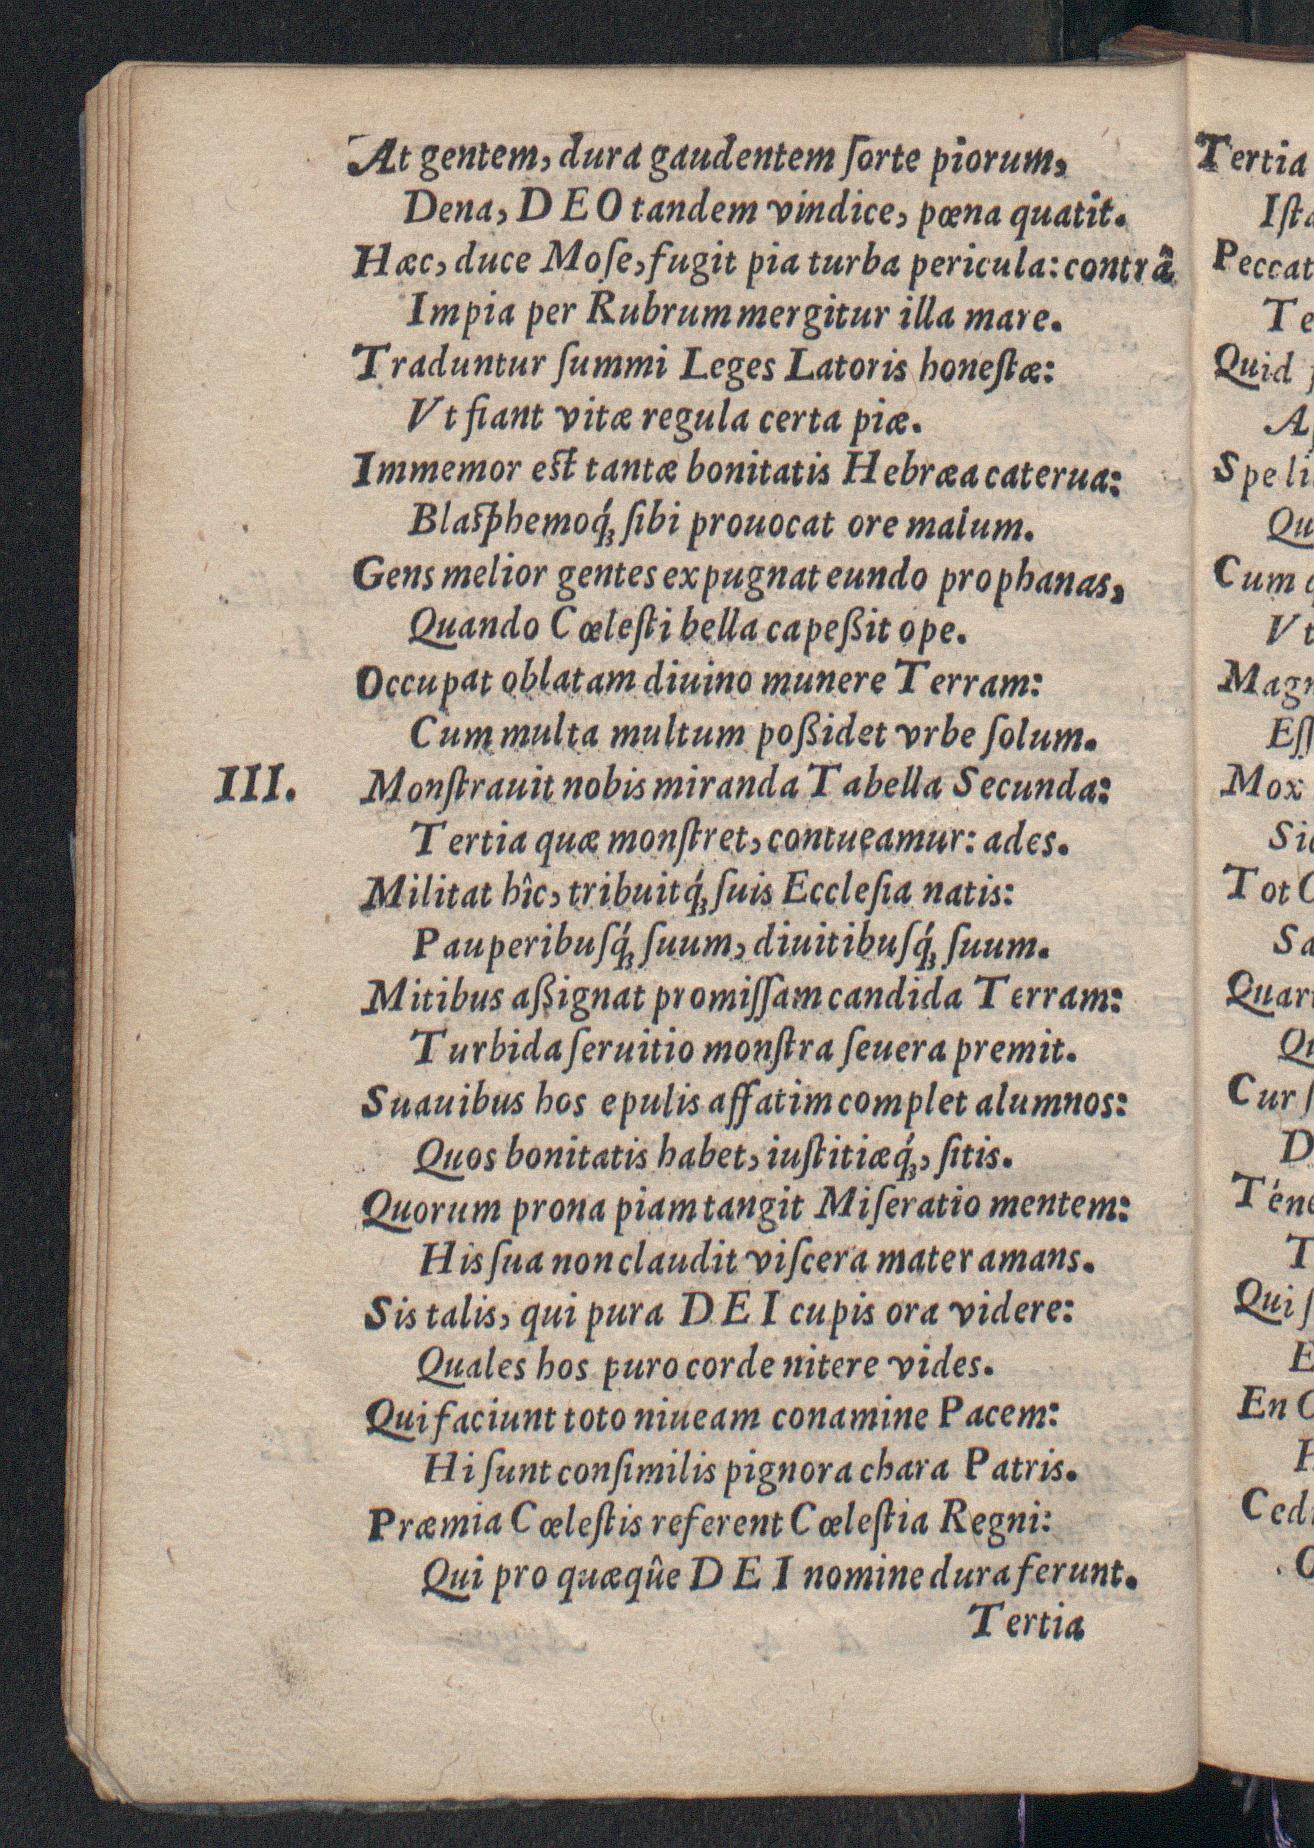 At gentem, dura gaudentem ſorte piorum,
Dena, DEO tandem vindice, pœna quatit.
Hæc, duce Moſe, fugit pia turba pericula: contrâ
Impia per Rubrum mergitur illa mare.
Traduntur ſummi Leges Latoris honeſtæ:
Vt fiant vitæ regula certa piæ.
Immemor eſt tantæ bonitatis Hebræa caterua:
Blaſphemoq́ꝫ ſibi prouocat ore malum.
Gens melior gentes expugnat eundo prophanas,
Quando Cœleſti bella capeßit ope.
Occupat oblatam diuino munere Terram:
Cum multa multum poßidet vrbe ſolum.
III. Monſtrauit nobis miranda Tabella Secunda:
Tertia quæ monſtret, contueamur: ades.
Militat hîc, tribuitq́ꝫ ſuis Eccleſia natis:
Pauperibuſq́ꝫ ſuum, diuitibuſq́ꝫ ſuum.
Mitibus aßignat promiſſam candida Terram:
Turbida ſeruitio monſtra ſeuera premit.
Suauibus hos epulis affatim complet alumnos:
Quos bonitatis habet, iuſtitiæq́ꝫ, ſitis.
Quorum prona piam tangit Miſeratio mentem:
His ſua non claudit viſcera mater amans.
Sis talis, qui pura DEI cupis ora videre:
Quales hos puro corde nitere vides.
Qui faciunt toto niueam conamine Pacem:
Hi ſunt conſimilis pignora chara Patris.
Præmia Cœleſtis referent Cœleſtia Regni:
Qui pro quæqûe DEI nomine dura ferunt.
Tertia
Tertia
Peccat
Quid
Spe
Cum
Vt
Mox
Tot
Cur